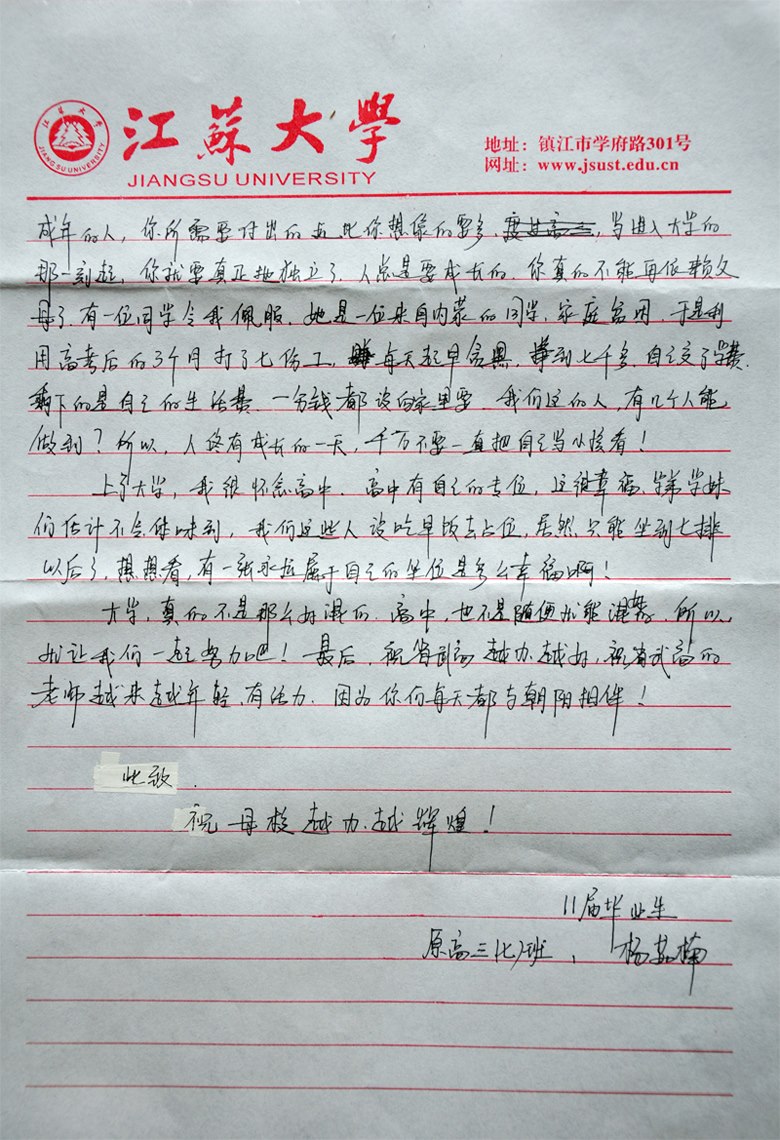 江苏大学
JIANGSU UNIVERSITY
江苏大学
JIANGSU UNIVERSITY
地址：镇江市学府路301号
网址：www.jsust.edu.cn
成年的人，你所需要付出的远比你想像的要多，当进入大学的
那一刻起，你就要真正地独立了，人总是要成长的，你真的不能再依赖父
母了，有一位同学令我佩服，她是一位来自内蒙的同学，家庭贫困，于是利
用高考后的3个月打了七份工，每天起早贪黑，挣到七千多，自己交了学费，
剩下的是自己的生活费，一分钱都没向家里要，我们这的人，有几个人能
做到？所以，人终有成长的一天，千万不要一直把自己当小孩看！
上了大学，我很怀念高中，高中有自己的专位，这很幸福，学弟学妹
们估计不会体味到，我们这些人没吃早饭去占位，居然只能坐到七排
以后了，想想看，有一张永远属于自己的坐位是多么幸福啊！
大学，真的不是那么好混的，高中，也不是随便就能混，所以，
就让我们一起努力吧！最后，祝省武高越办越好，祝省武高的
老师越来越年轻，有活力，因为你们每天都与朝阳相伴！
此致
祝母校越办越辉煌！
11届毕业生
原高三(七)班，杨楠